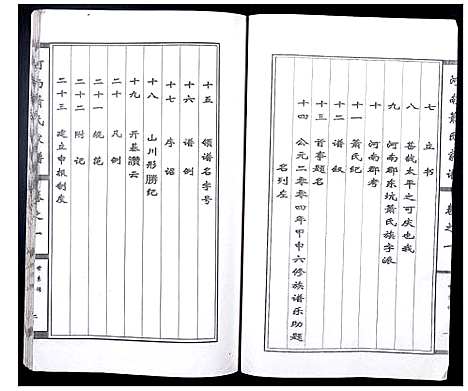 河南蕭氏族譜
卷之一
七 立书
八 甚钦太平之可庆也哉
九 河南郡东坑萧氏族字派
十 河南郡考
十一 萧氏纪
十二 谱叙
十三 首事题名
十四 公元二零零四年甲申六修族谱乐助题
名列左
十五 领谱名字号
十六 谱例
十七 序诏
十八 山川形勝纪
十九 开基讚云
二十 凡例
二十一 规范
二十二 附记
二十三 建立申报制度
河南蕭氏族譜
卷之一
二